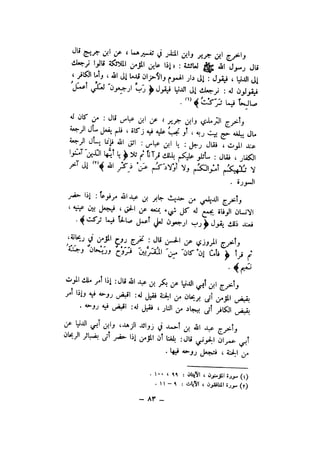 واخرج ابن جرير وابن المنذر في تفسيرهما ، عن ابن جريج قال
قال رسول الله ﷺ لعائشة : «إذا عاين المؤمن الملائكة قالوا نرجعك
إلى الدنيا ، فيقول : إلى دار الهموم والأحزان قدما إلى الله ، وأما الكافر ،
فيقولون له : نرجعك إلى الدنيا فيقول ﴿ رَبِّ ارجِعونِ لعلِّي أعمَلُ
صالِحاً فيما تَرَكْتُ ﴾ (١) .
وأخرج الترمذي وابن جرير ، عن ابن عباس قال : من كان له
مال يبلغه حج بيت ربه ، أو تجب عليه فيه زكاة ، فلم يفعل سأل الرجعة
عند الموت ، فقال رجل : يا ابن عباس : اتق الله فإنما يسأل الرجعة
الكفار ، فقال : سأتلو عليكم بذلك قرآناً ثم تلا ﴿ يا أيُّها الذينَ آمَنُوا
لا تُلْهِكُم أموالُكُم ولا أوْلادُكُم عَن ذِكْرِ الله ﴾ (٢) إلى آخر
السورة .
وأخرج الديلمي من حديث جابر بن عبدالله مرفوعاً : إذا حضر
الانسان الوفاة يجمع له كل شيء يمنعه عن الحق ، فيجعل بين عينيه ،
فعند ذلك يقول ﴿ رب ارجعون لعلي أعمل صالحاً فيما تركت ﴾ .
وأخرج المروزي عن الحسن قال : تخرج روح المؤمن في ريحانة،
ثم قرأ ﴿ فأمّا إنْ كانَ مِنَ المُقَرَّبينَ فَرَوْحٌ ورَيْحانٌ وجَنَّةُ
نَعيمٍ ﴾ .
وأخرج ابن أبي الدنيا عن بكر بن عبد الله قال : إذا أمر ملك الموت
بقبض المؤمن أتى بريحان من الجنة فقيل له : اقبض روحه فيه وإذا أمر
بقبض الكافر أتى ببجاد من النار ، فقيل له : اقبض روحه فيه .
وأخرج عبد الله بن أحمد في زوائد الزهد، وابن أبي الدنيا عن
أبي عمران الجوني قال : بلغنا أن المؤمن إذا حضر أتى بضبائر الريحان
من الجنة ، فتجعل روحه فيها .
(١) سورة المؤمنون ، الآيتان : ٩٩ ، ١٠٠ .
(٢) سورة المنافقون ، الآيات : ٩ - ١١ .
- ٨٣ -